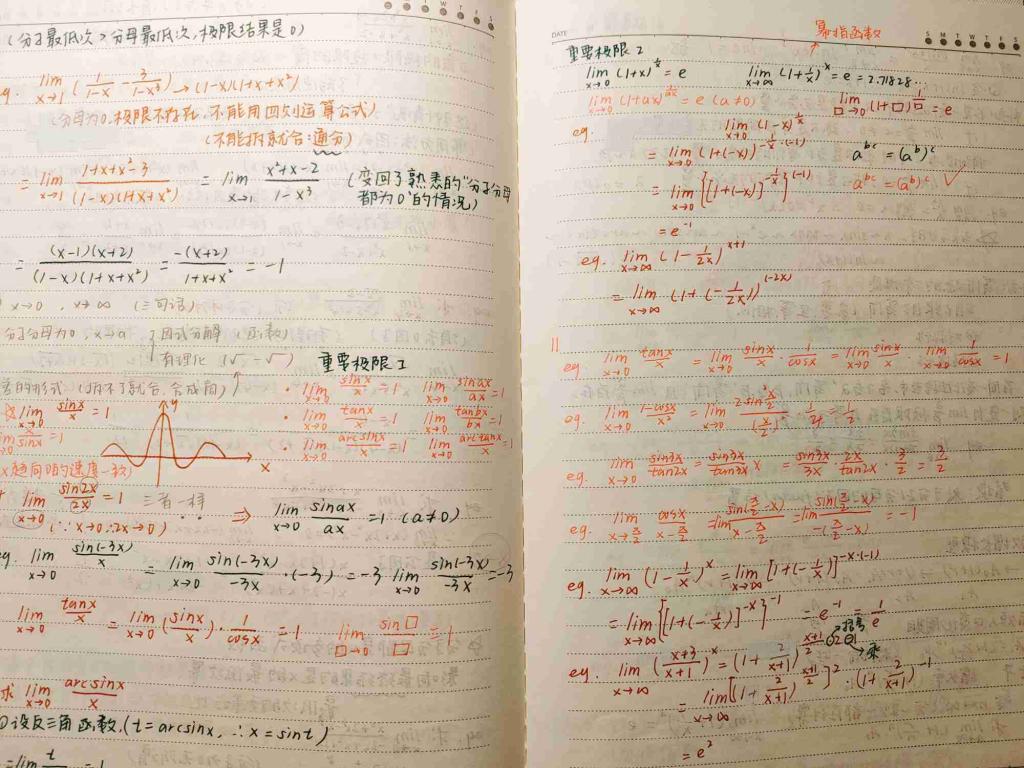 (分子最低次>分母最低次,极限结果是0)
eg. lim x→1 (1/(1-x) - 3/(1-x³)) → (1-x)(1+x+x²)
(分母为0,极限不存在,不能用四则运算公式)
(不能拆就合:通分)
= lim x→1 (1+x+x²-3)/((1-x)(1+x+x²)) = lim x→1 (x²+x-2)/(1-x³) (变回了熟悉的"分子分母都为0"的情况)
= (x-1)(x+2)/((1-x)(1+x+x²)) = -(x+2)/(1+x+x²) = -1
x→0 , x→∞ (三句话)
分子分母为0, x→a { 因式分解
有理化 (√ - √)
重要极限1
的形式 (拆不了就合,合成商)
lim x→0 sinx/x = 1
lim x→0 x/sinx = 1
y
x
x趋向0的速度一致)
• lim x→0 sinx/x = 1 lim x→0 sinax/ax = 1
• lim x→0 tanx/x = 1 lim x→0 tanbx/bx = 1
• lim x→0 arcsinx/x = 1 lim x→0 arctanx/x = 1
lim x→0 sin2x/2x = 1 三者一样 ⇒ lim x→0 sinax/ax = 1 (a≠0)
(∵x→0∴2x→0)
eg. lim x→0 sin(-3x)/x = lim x→0 sin(-3x)/-3x ·(-3) = -3 lim x→0 sin(-3x)/-3x = -3
lim x→0 tanx/x = lim x→0 (sinx/x)· 1/cosx = 1 lim □→0 sin□/□ = 1
求 lim x→0 arcsinx/x
①设反三角函数,(t=arcsinx, ∴x=sint)
= lim t = 1
DATE
幂指函数
S M T W T F S
重要极限2
lim x→0 (1+x)^(1/x) = e lim x→∞ (1+1/x)^x = e = 2.71828...
lim x→0 (1+ax)^(1/ax) = e (a≠0) lim □→0 (1+□)^(1/□) = e
eg. lim x→0 (1-x)^(1/x)
= lim x→0 (1+(-x))^(-1/x·(-1)) a^bc = (a^b)^c
= lim x→0 {[1+(-x)]^(-1/x)}^(-1) a^bc = (a^b)^c ✓
= e^-1
eg. lim x→∞ (1-1/2x)^(x+1)
= lim x→∞ (1+(-1/2x))^(-2x)
11
eg. lim x→0 tanx/x = lim x→0 sinx/x · 1/cosx = lim x→0 sinx/x · lim x→0 1/cosx = 1
eg. lim x→0 (1-cosx)/x² = lim x→0
eg. lim x→0 sin3x/tan2x = sin3x/3x · 2x/tan2x · 3/2 = 3/2
eg. lim x→π/2 cosx/(x-π/2) = lim sin(π/2-x)/(x-π/2) = lim sin(π/2-x)/-(π/2-x) = -1
eg. lim x→∞ (1-1/x)^x = lim x→∞ [1+(-1/x)]^(-x·(-1))
= lim x→∞ {[1+(-1/x)]^(-x)}^(-1) = e^-1 = 1/e
eg. lim x→∞ ((x+3)/(x+1))^x = (1+2/(x+1))
括号
乘
= lim x→∞ [(1+2/(x+1))^((x+1)/2)]² · (1+2/(x+1))^-1
= e²